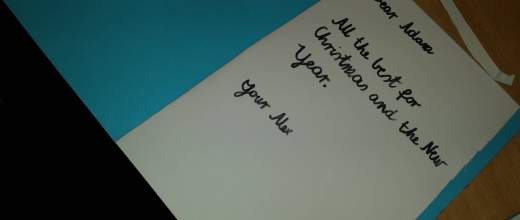 Dear Adam
All the best for
Christmas and the New
Year.
Your Alex